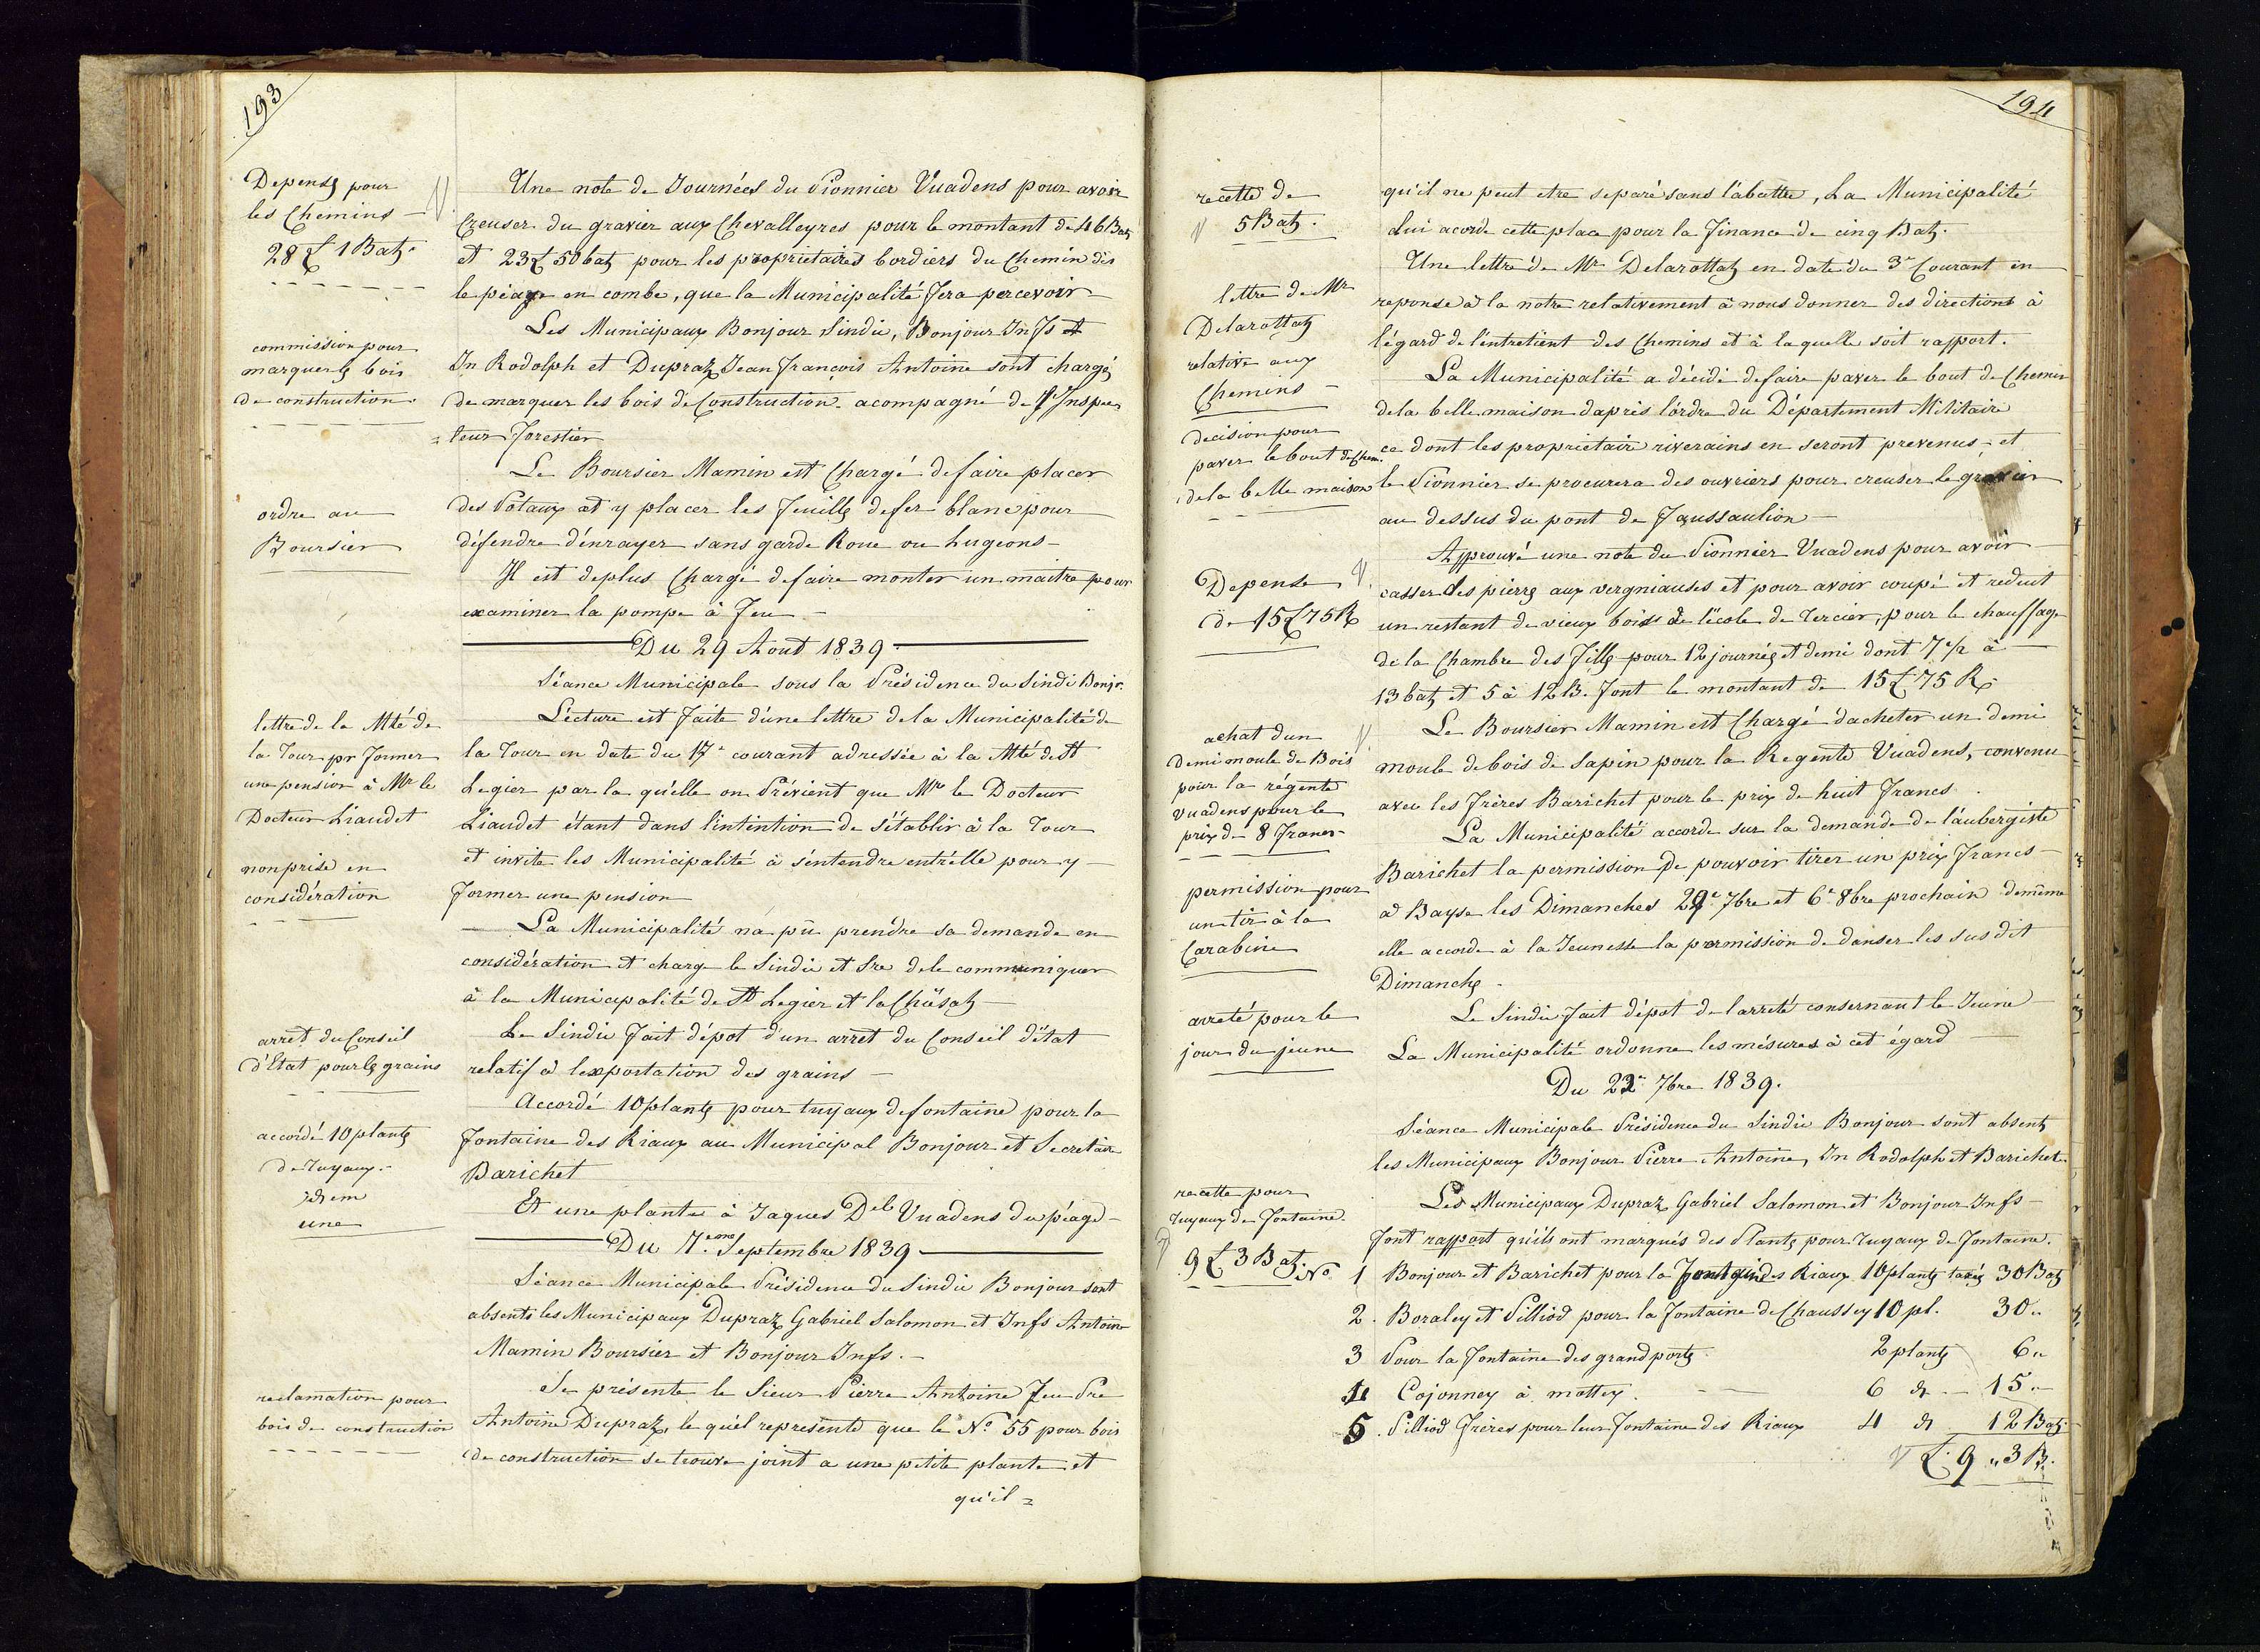 193
Depens̃ pour
les Chemins –
28 £ 1 Batz.
commission pour
marquer les bois
de construction.
ordre au
Boursier
lettre de la Mté de
la Tour pr former
une pension à Mr le
Docteur Liaudet
non prise en
considération
arret du Conseil
d'Etat pour les grains
accordé 10 plantes
de Tuyaux.
idem
une
reclamation pour
bois de construction
Une note de Journées du Pionnier Vuadens pour avoir
Creuser du gravier aux Chevalleyres pour le montant de 46 Batz
et 23 £ 50 batz pour les proprietaires bordiers du Chemin dès
le péage en combe, que la Municipalité fera percevoir
Les Municipaux Bonjour Sindic, Bonjour Jn Fs et
Jn Rodolph et Dupraz Jean François Antoine sont chargés
de marquer les bois de Construction acompagné de l'Inspec
=teur Forestier
Le Boursier Mamin est Chargé de faire placer
des Potaux et y placer les feuilles de fer blanc pour
défendre d'enrayer sans garde Roue ou Lugeons –
Il est deplus Chargé de faire monter un maitre pour
examiner la pompe à Feu –
Du 29 Aout 1839.
Séance Municipale sous la Présidence du Sindi Bonjr.
Lécture est faite d'une lettre de la Municipalité de
la Tour en date du 17e courant adressée à la Mté de St
Legier par la quélle on Prévient que Mr le Docteur
Liaudet étant dans l'intention de s'établir à la Tour
et invite les Municipalité à s'éntendre entr'élle pour y
former une pension
La Municipalité n'a pû prendre sa demande en
considération et charge le Sindic et Sre de le communiquer
à la Municipalité de St Legier et la Chiésaz
Le Sindic fait dépot d'un arret du Conseil d'état
relatif à lexportation des grains –
Accordé 10 plantes pour tuyaux de fontaine pour la
fontaine des Riaux au Municipal Bonjour et Secretaire
Barichet
Et une plante à Jaques Del Vuadens du péage –
Du 7.eme Septembre 1839
Séance Municipale Présidence du Sindic Bonjour sont
absents les Municipaux Dupraz Gabriel Salomon et Jnfs Antoine
Mamin Boursier et Bonjour Jnfs. –
Se présente le Sieur Pierre Antoine feu Pre
Antoine Dupraz, le quél represente que le No 55 pour bois
de construction se trouve joint a une petite plante et
qu'il =
194
recette de
5 Batz.
lettre de Mr
Delarottaz
relative aux
Chemins –
decision pour
paver le bout de Chem.
de la belle maison
Depense
de 15 £ 75 R
achat dun
Demi moule de Bois
pour la régente
Vuadens pour le
prix de 8 Francs –
permission pour
un tir à la
Carabine
arreté pour le
jour du jeune
recette pour
Tuyaux de Fontaine.
9 £ 3 Batz.
qu'il ne peut etre separé sans l'abattre, La Municipalité
Lui acorde cette place pour la Finance de cinq Batz.
Une lettre de Mr Delarottaz en date du 3e Courant en
reponse à la notre relativement à nous donner des directions à
légard de l'entretient des Chemins et à la quelle soit rapport.
La Municipalité a décidé de faire paver le bout de Chemin
de la belle maison daprès lórdre du Département Militaire
ce dont les proprietaire riverains en seront prevenus – et
le Pionnier se procurera des ouvriers pour creuser le gravier
au dessus du pont de Faussaulion –
Approuvé une note du Pionnier Vuadens pour avoir
casser des pierres aux vergniauses et pour avoir coupé et reduit
un restant de vieux bois de l'école de Tercier, pour le chauffage
de la Chambre des Filles pour 12 journées et demi dont 7 1/2 à
13 batz et 5 à 12 B. font le montant de 15 £ 75 R.
Le Boursier Mamin est Chargé dacheter un demi
moule de bois de Sapin pour la Regente Vuadens, convenu
avec les frères Barichet pour le prix de huit Francs.
La Municipalité accorde sur la demande de l'aubergiste
Barichet la permission de pouvoir tirer un prix francs –
à Bayse les Dimanches 29e 7bre et 6e 8bre prochain demême
elle accorde à la Jeunesse la permission de danser les sus dit
Dimanches.
Le Sindic fait dépot de larreté consernant le Jeune
La Municipalité ordonne les mésures à cet égard
Du 22e 7bre 1839.
Séance Municipale Présidence du Sindic Bonjour sont absents
les Municipaux Bonjour Pierre Antoine, Jn Rodolph et Barichet.
Les Municipaux Dupraz Gabriel Salomon et Bonjour Jnfs –
font rapport qu'ils ont marqués des Plantes pour Tuyaux de Fontaine.
No 1 Bonjour et Barichet pour la fontaine des Riaux 10 plantes taxés 30 Batz
2. Boraley et Pilliod pour la fontaine de Chaussey 10 pl. 30 "
3 Pour la fontaine des grand ports 2 plantes 6 "
4 Cojonney à mottey. 6 d – 15 "
5. Pilliod frères pour leur fontaine des Riaux 4 d 12 Batz
£. 9 " 3 B.